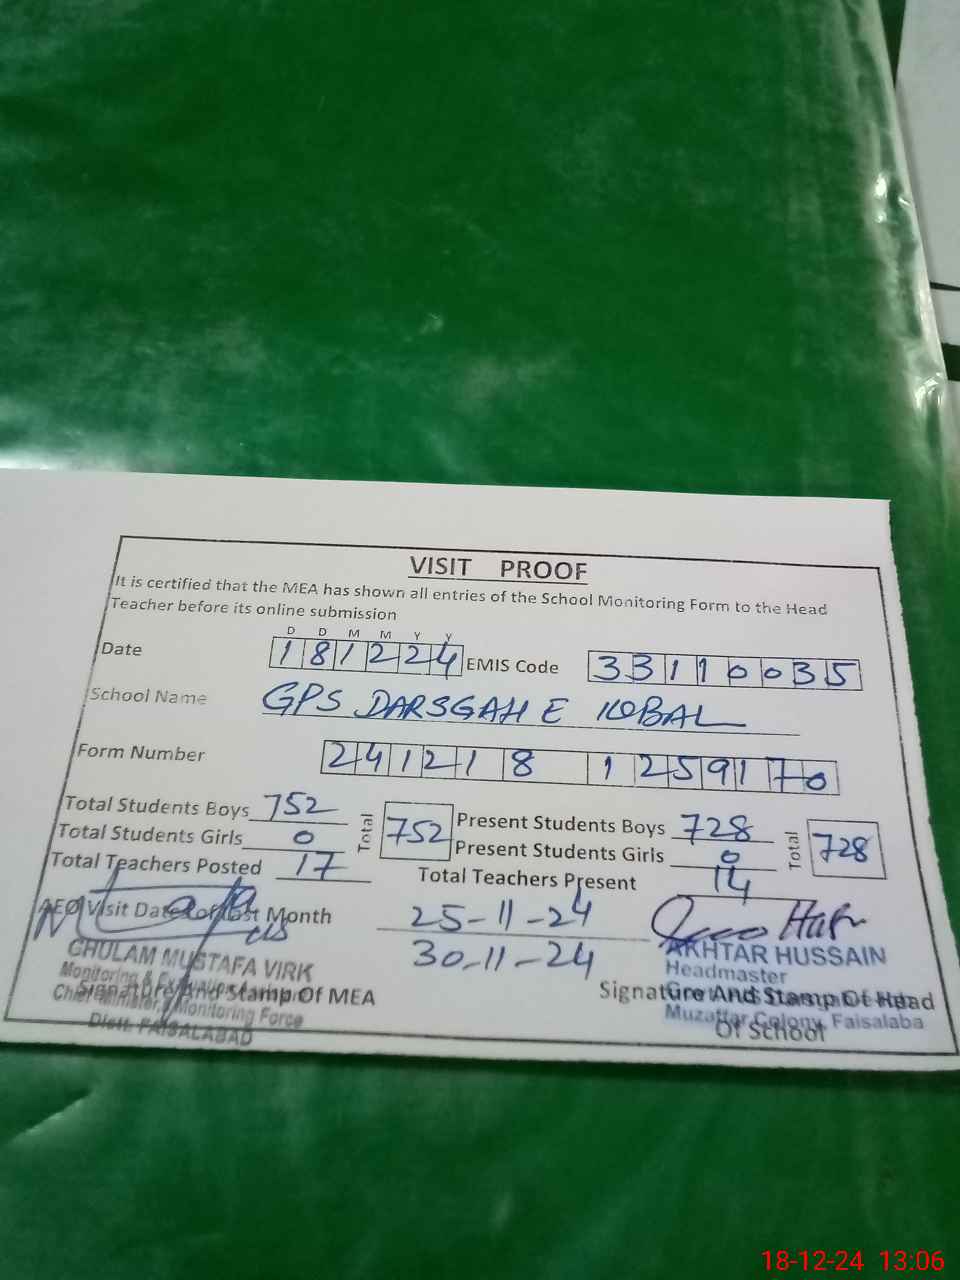 VISIT PROOF
It is certified that the MEA has shown all entries of the School Monitoring Form to the Head
Teacher before its online submission
D D M M Y Y
Date 181224 EMIS Code 33110035
School Name GPS DARSGAH E IQBAL
Form Number 241218 1259170
Total Students Boys 752 Total 752 Present Students Boys 728 Total 728
Total Students Girls 0 Present Students Girls 0
Total Teachers Posted 17 Total Teachers Present 14
AEO Visit Date of last Month 25-11-24
30-11-24
GHULAM MUSTAFA VIRK
Monitoring & Evaluation
Chief Minister's Monitoring Force
Distt. FAISALABAD
Signature And Stamp Of MEA
AKHTAR HUSSAIN
Headmaster
Muzaffar Colony, Faisalaba
Signature And Stamp Of Head
Of School
18-12-24 13:06